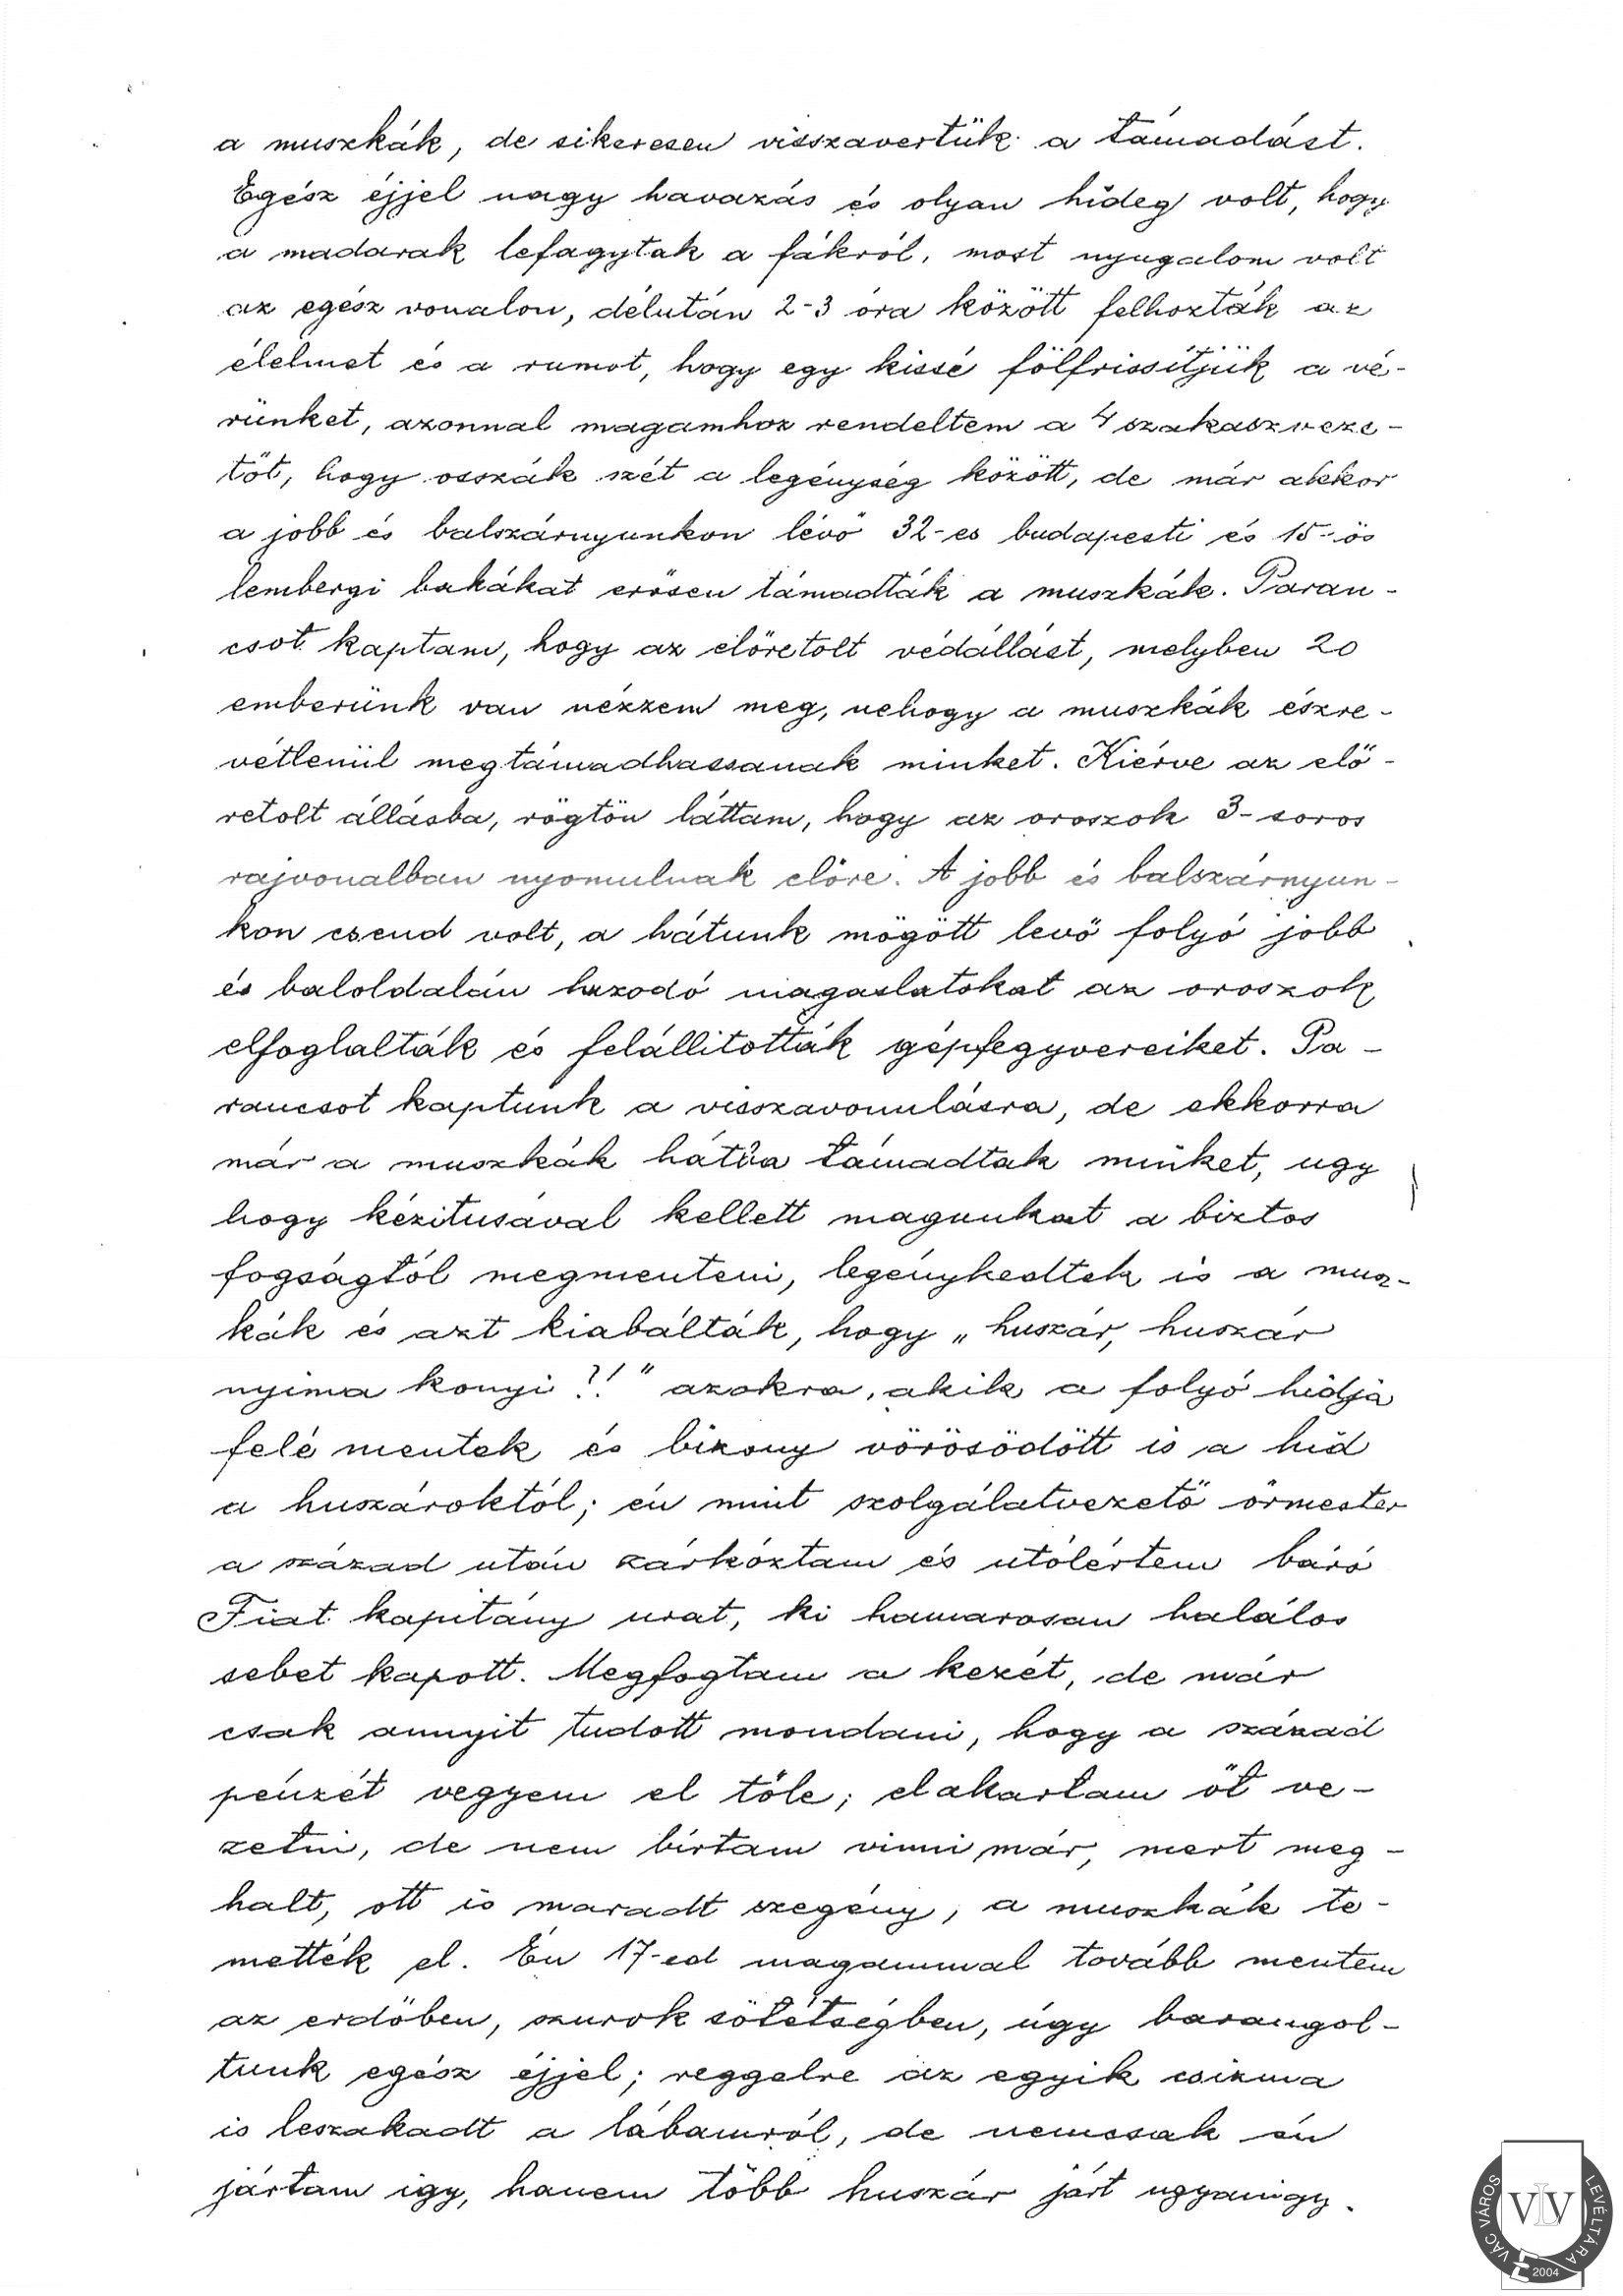 a muszkák, de sikeresen visszavertük a támadást.
Egész éjjel nagy havazás és olyan hideg volt, hogy
a madarak lefagytak a fákról, most nyugalom volt
az egész vonalon, délután 2-3 óra között felhozták az
élelmet és a rumot, hogy egy kissé fölfrissítjük a vé-
rünket, azonnal magamhoz rendeltem a 4 szakaszveze-
tőt, hogy osszák szét a legénység között, de már akkor
a jobb és balszárnyunkon lévő 32-es budapesti és 15-ös
lembergi bakákat erősen támadták a muszkák. Paran-
csot kaptam, hogy az előretolt védállást, melyben 20
emberünk van nézzem meg, nehogy a muszkák észre-
vétlenül megtámadhassanak minket. Kiérve az elő-
retolt állásba, rögtön láttam, hogy az oroszok 3-soros
rajvonalban nyomulnak előre. A jobb és balszárnyun-
kon csend volt, a hátunk mögött levő folyó jobb
és baloldalán huzodó magaslatokat az oroszok
elfoglalták és felállitották gépfegyvereiket. Pa-
rancsot kaptunk a visszavonulásra, de ekkorra
már a muszkák hátba támadtak minket, ugy
hogy kézitusával kellett magunkat a biztos
fogságtól megmenteni, legénykedtek is a musz-
kák és azt kiabálták, hogy „huszár, huszár
nyima konyi?!" azokra, akik a folyó hidja
felé mentek és bizony vörösödött is a hid
a huszároktól; én mint szolgálatvezető őrmester
a század után zárkóztam és utólértem báró
Fiat kapitány urat, ki hamarosan halálos
sebet kapott. Megfogtam a kezét, de már
csak annyit tudott mondani, hogy a század
pénzét vegyem el tőle; elakartam őt ve-
zetni, de nem birtam vinni már, mert meg-
halt, ott is maradt szegény, a muszkák te-
mették el. Én 17-ed magammal tovább mentem
az erdőben, szurok sötétségben, úgy barangol-
tunk egész éjjel; reggelre az egyik csizma
is leszakadt a lábamról, de nemcsak én
jártam igy, hanem több huszár járt ugyanigy.
VÁC VÁROS LEVÉLTÁRA
VLV
2004